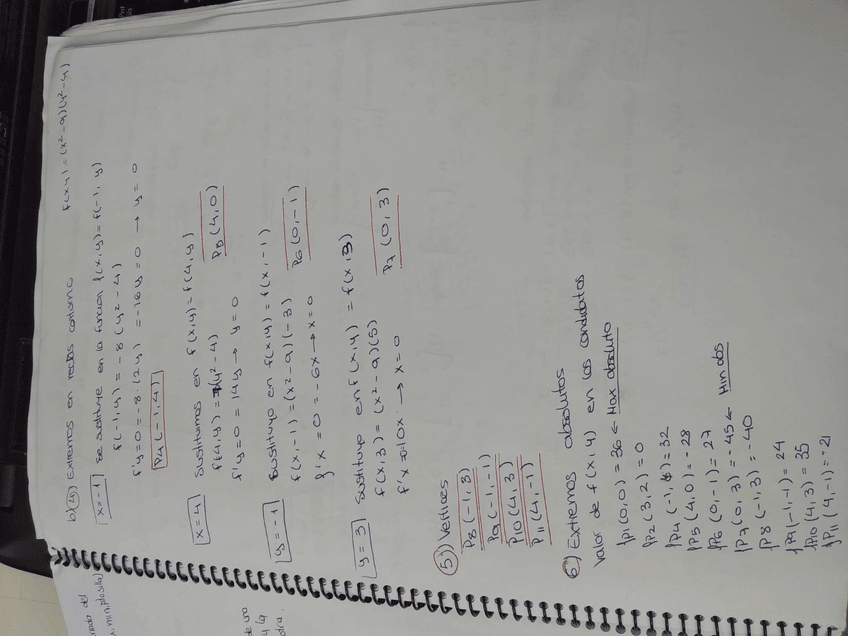 b) Extremos en rectas contorno f(x,y) = (x²-9)(y²-4)
x=-1 se sustituye en la función f(x,y) = f(-1, y)
f(-1,y) = -8 (y²-4)
f'y=0 = -8·(2y) = -16y = 0 → y = 0
P4 (-1,4)
x=4 Sustituimos en f(x,y) = f(4,y)
f(4,y) = 7(y²-4)
f'y=0 = 14y → y=0 P5 (4,0)
y=-1 Sustituyo en f(x,y) = f(x,-1)
f(x,-1) = (x²-9)(-3)
f'x=0 = -6x → x=0 P6 (0,-1)
y=3 Sustituyo en f(x,y) = f(x,3)
f(x,3) = (x²-9)(5)
f'x=10x → x=0 P7 (0,3)
5) Vertices
P8 (-1,3)
P9 (-1,-1)
P10 (4,3)
P11 (4,-1)
6) Extremos absolutos
Valor de f(x,y) en los candidatos
fP1 (0,0) = 36 ← Max absoluto
fP2 (3,2) = 0
fP4 (-1,0) = 32
fP5 (4,0) = -28
fP6 (0,-1) = 27
fP7 (0,3) = -45 ← Min abs
fP8 (-1,3) = -40
fP9 (-1,-1) = 24
fP10 (4,3) = 35
fP11 (4,-1) = -21